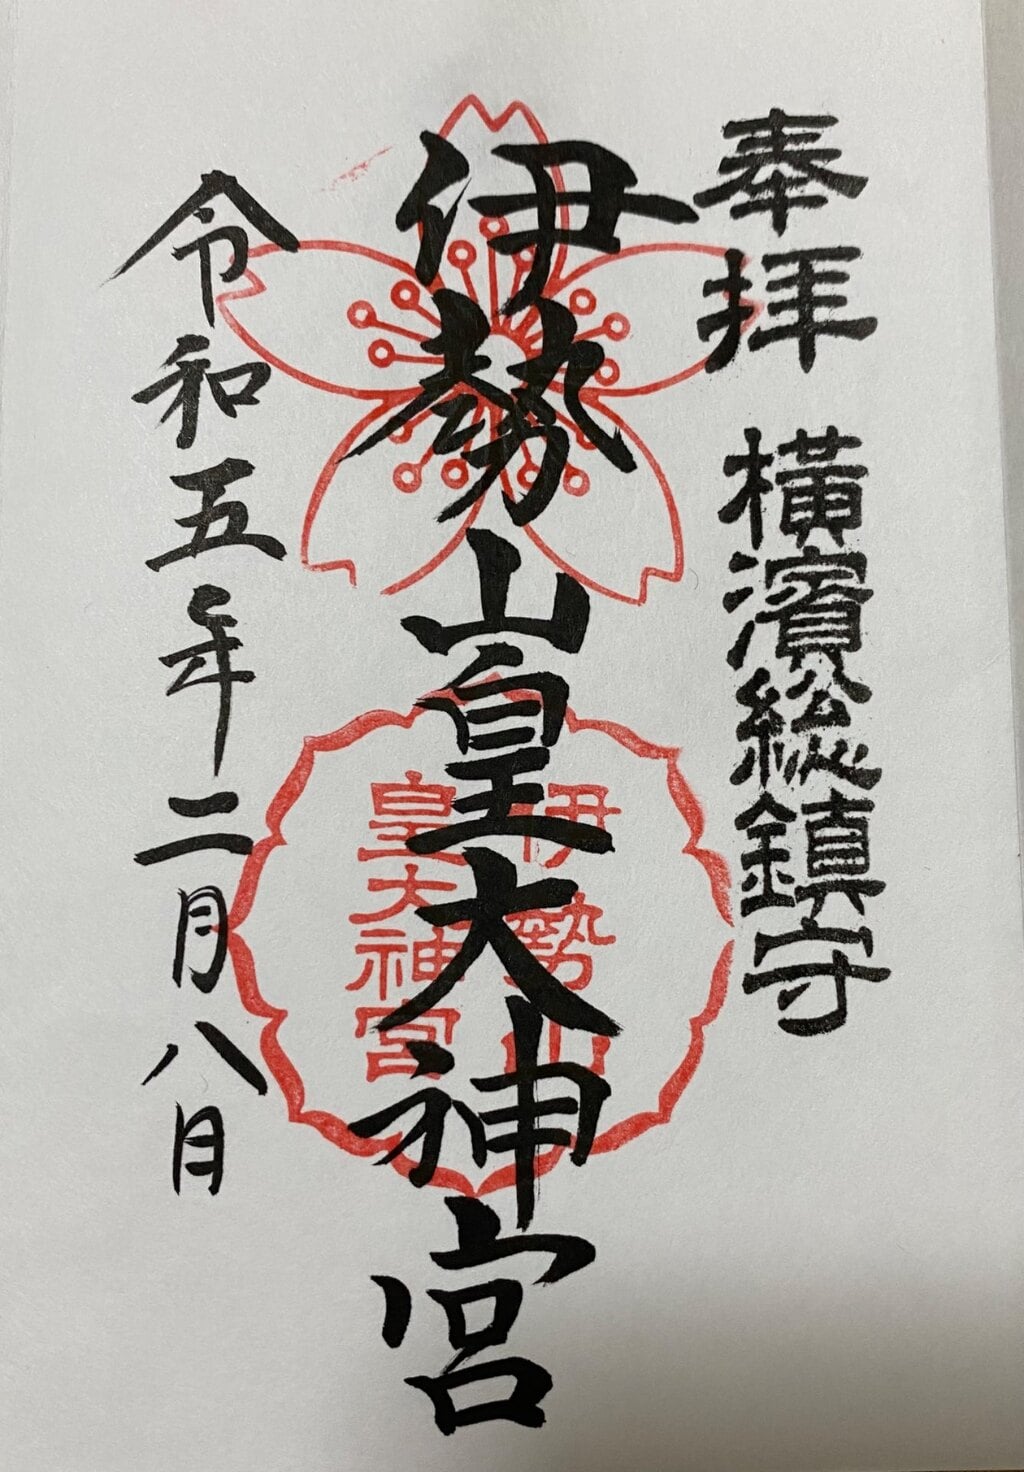 奉拝 橫濱総鎮守
伊勢山皇大神宮
伊勢山
皇大神宮
令和五年二月八日